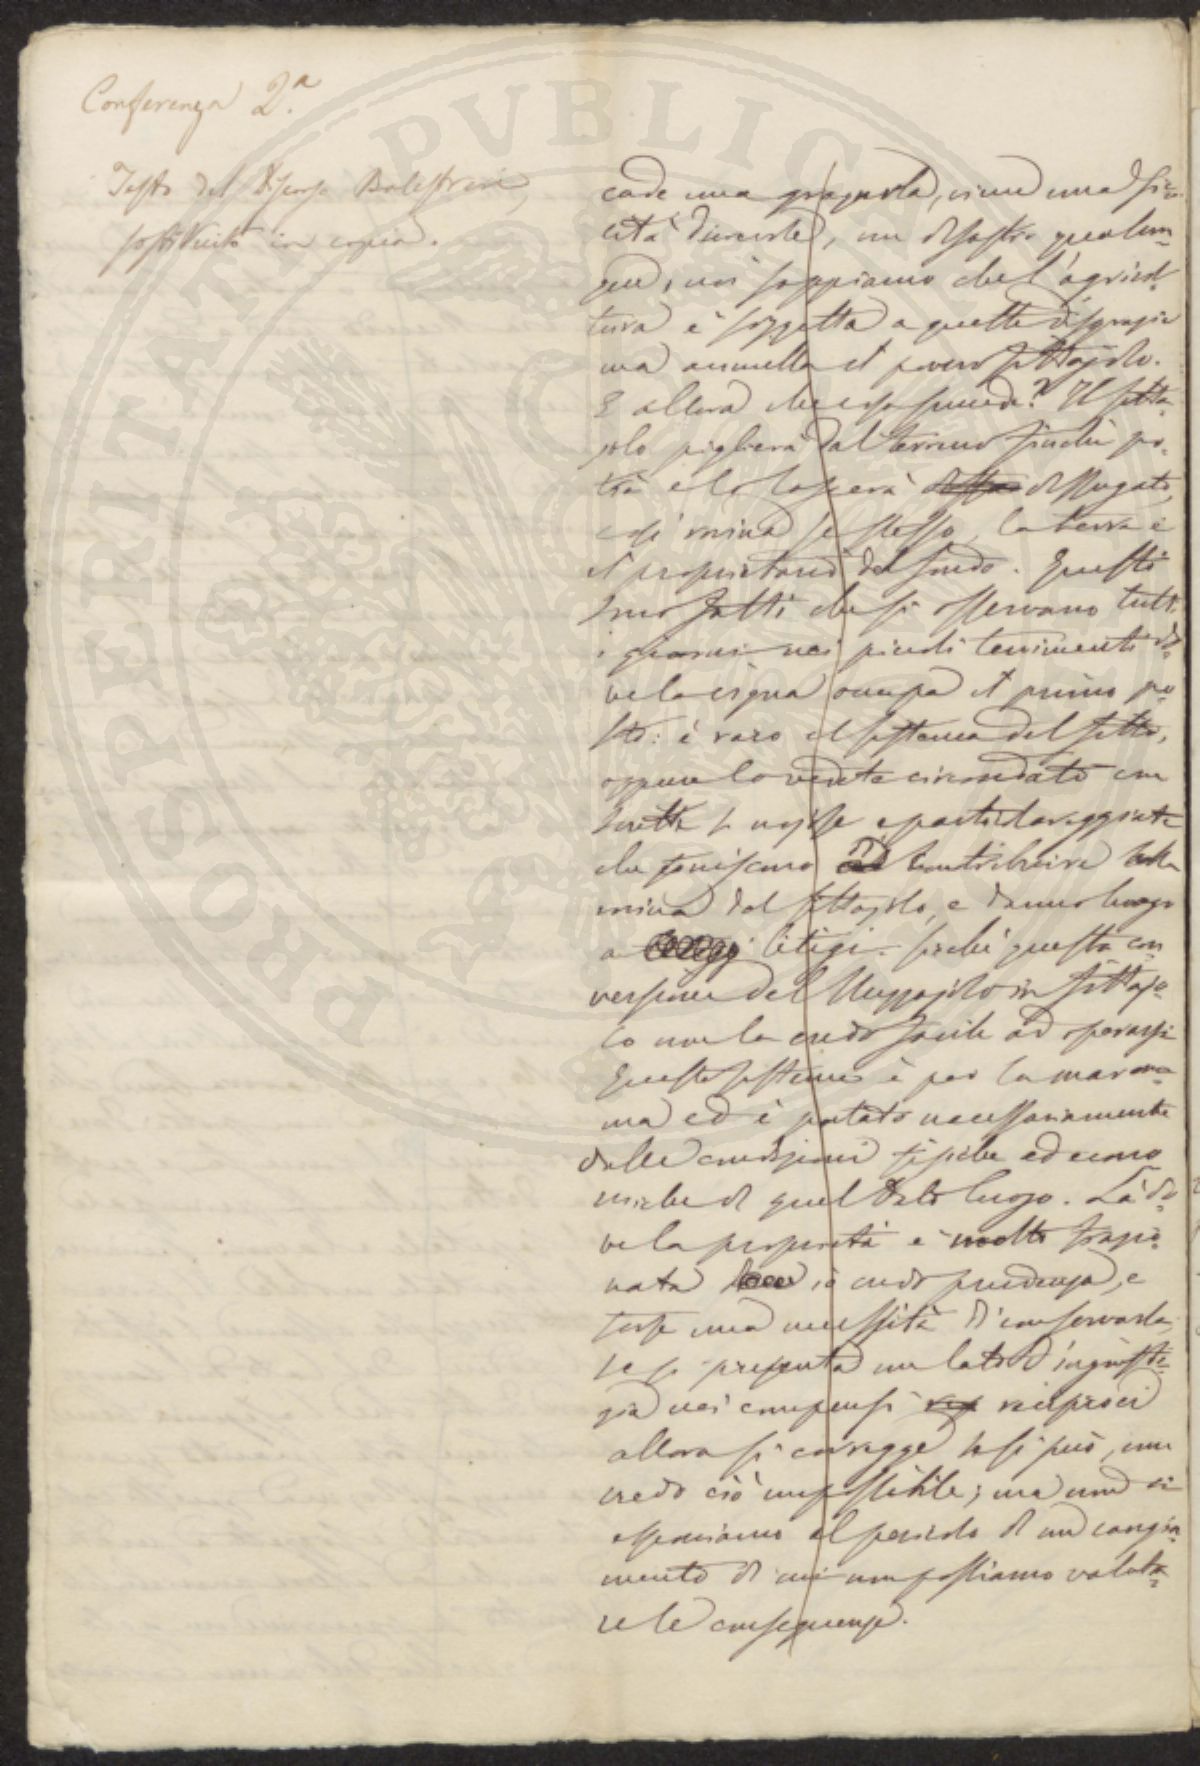 Conferenza 2.a
Testo del Discorso Balestreri
sostituito in copia.
cade una gragnola, viene una sic-
cità diurente, un disastro qualun-
que, noi sappiamo che l'agricol-
tura è soggetta a queste disgrazie
ma annulla il povero fittajolo.
E allora che cosa succede? Il fitta-
jolo piglierà dal terreno finchè po-
trà e lo lascerà desso dissugato,
così rovina se stesso, la terra e
il proprietario del fondo. Questi
sono fatti che si osservano tutti
i giorni nei piccoli tenimenti do-
ve la vigna occupa il primo po-
sto: è raro il sistema del fitto,
oppure lo vedete circondato con
che finiscono ad contribuire alla
rovina del fittajolo, e danno luogo
a litigi. Sicchè questa con-
versione del Mezzajolo in fittajo-
lo non la credo facile ad operarsi
Questo sistema è per la marem-
ma ed è portato necessariamente
dalle condizioni fisiche ed econo-
miche di quel dato luogo. Là do-
ve la proprietà è molto frazio-
nata è credo prudenza, e
forse una necessità di conservarla;
se si presenta un lato d'ingiusti-
zia nei compensi rep reciproci
allora si corregge se si può, non
credo ciò impossibile; ma non ci
esponiamo al pericolo di un cangia-
mento di cui non possiamo valuta-
re le conseguenze.
PROSPERITATI PUBLICAE